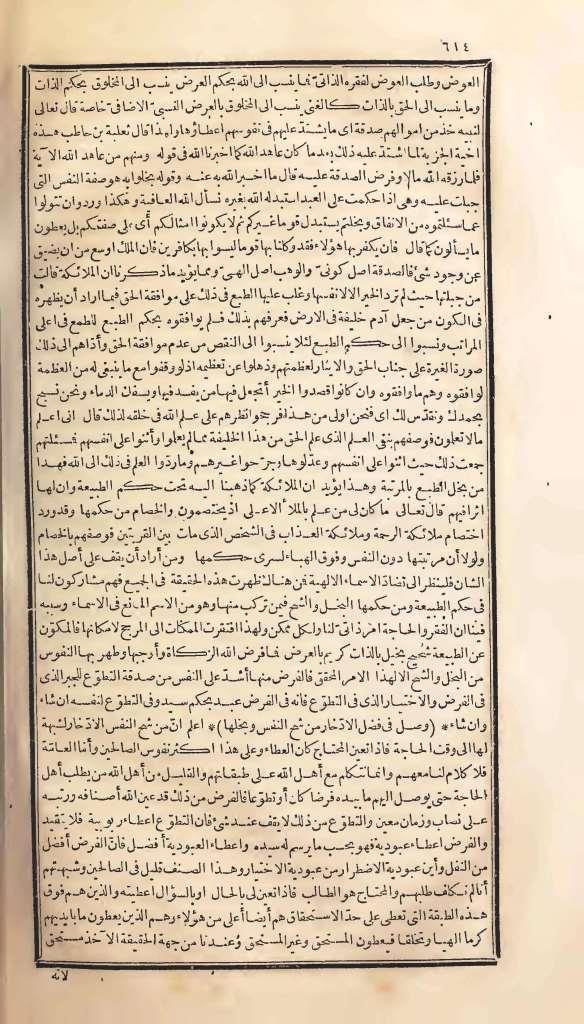 ٦١٤
العوض وطلب العوض لفقره الذاتي فما ينسب الى الله بحكم العرض ينسب الى المخلوق بحكم الذات
وما ينسب الى الحق بالذات كالغنى ينسب الى المخلوق بالعرض النسبي الاضافي خاصة قال تعالى
لنبيه خذ من اموالهم صدقة اى ما يشتد عليهم فى نفوسهم اعطاؤها ولهذا قال ثعلبة بن حاطب هذه
اخية الجزية لما اشتد عليه ذلك بعد ما كان عاهد الله كما اخبرنا الله فى قوله ومنهم من عاهد الله الآية
فلما رزقه الله مالا وفرض الصدقة عليه قال ما اخبر الله به عنه وقوله بخلوا به هو صفة النفس التى
جبلت عليه وهى اذا حكمت على العبد استبدله الله بغيره نسأل الله العافية وهكذا ورد وان تتولوا
عما سئلتموه من الانفاق وبخلتم يستبدل قوما غيركم ثم لا يكونوا امثالكم أى على صفتكم بل يعطون
ما يسألون كما قال فان يكفر بها هؤلاء فقد وكلنا بها قوما ليسوا بها بكافرين فان الملك اوسع من ان يضيق
عن وجود شئ فالصدقة اصل كونى والوهب اصل الهى ومما يؤيد ما ذكرناه ان الملائكة قالت
من جبلتها حيث لم ترد الخير الا لانفسها وغلب عليها الطبع فى ذلك على موافقة الحق فيما اراد أن يظهره
فى الكون من جعل آدم خليفة فى الارض فعرفهم بذلك فلم يوافقوه بحكم الطبع للطمع فى اعلى
المراتب ونسبوا الى حكم الطبع لئلا ينسبوا الى النقص من عدم موافقة الحق وأداهم الى ذلك
صورة الغيرة على جناب الحق والايثار لعظمته وذهلوا عن تعظيمه اذ لو وقفوا مع ما ينبغى له من العظمة
لوافقوه وهم ما وافقوه وان كانوا قصدوا الخير أتجعل فيها من يفسد فيها ويسفك الدماء ونحن نسبح
بحمدك ونقدس لك اى فنحن اولى من هذا فرجحوا نظرهم على علم الله فى خلقه لذلك قال انى اعلم
ما لا تعلمون فوصفهم بنفى العلم الذى علم الحق من هذا الخليفة مما لم يعلموا وأثنوا على انفسهم فمسئلتهم
جمعت ذلك حيث اثنوا على انفسهم وعدّلوها وجرّحوا غيرهم وما ردّوا العلم فى ذلك الى الله فهذا
من بخل الطبع بالمرتبة وهذا يؤيد ان الملائكة كما ذهبنا اليه تحت حكم الطبيعة وان لها
اثرا فيهم قال تعالى ما كان لى من علم بالملأ الاعلى اذ يختصمون والخصام من حكمها وقد ورد
اختصام ملائكة الرحمة وملائكة العذاب فى الشخص الذى مات بين القريتين فوصفهم بالخصام
ولولا أن مرتبتها دون النفس وفوق الهباء لسرى حكمها ومن أراد أن يقف على أصل هذا
الشان فلينظر الى تضاد الاسماء الالهية فمن هناك ظهرت هذه الحقيقة فى الجميع فهم مشاركون لنا
فى حكم الطبيعة ومن حكمها البخل والشح فيمن تركب منها وهو من الاسم المانع فى الاسماء وسببه
فينا ان الفقر والحاجة امر ذاتى لنا ولكل ممكن ولهذا افتقرت الممكنات الى المرجح لامكانها فالمكوّن
عن الطبيعة شحيح بخيل بالذات كريم بالعرض فما فرض الله الزكاة وأوجبها وطهر بها النفوس
من البخل والشح الا لهذا الامر المحقق فالفرض منها أشدّ على النفس من صدقة التطوّع للجبر الذى
فى الفرض والاختيار الذى فى التطوّع فانه فى الفرض عبد بحكم سيد وفى التطوّع لنفسه ان شاء
وان شاء * (وصل فى فضل الادّخار من شح النفس وبخلها) * اعلم انّ من شح النفس الادّخار لشبهة
لها الى وقت الحاجة فاذا تعين المحتاج كان العطاء وعلى هذا اكثر نفوس الصالحين وأما العامّة
فلا كلام لنا معهم وانما نتكلم مع أهل الله على طبقاتهم والقليل من أهل الله من يطلب أهل
الحاجة حتى يوصل اليهم ما بيده فرضا كان أو تطوّعا فالفرض من ذلك قد عين الله أصنافه ورتبه
على نصاب وزمان معين والتطوّع من ذلك لا يقف عند شئ فان التطوّع اعطاء ربوبية فلا يتقيد
والفرض اعطاء عبودية فهو بحسب ما يرسم له سيده واعطاء العبودية أفضل فانّ الفرض أفضل
من النفل وأين عبودية الاضطرار من عبودية الاختيار وهذا الصنف قليل فى الصالحين وشبهتهم
أنا لم نكلف طلبهم والمحتاج هو الطالب فاذا تعين لى بالحال او بالسؤال اعطيته والذين هم فوق
هذه الطبقة التى تعطى على حدّ الاستحقاق هم أيضا أعلى من هؤلاء وهم الذين يعطون ما بايديهم
كرما الهيا وتخلقا فيعطون المستحق وغير المستحق وعندنا من جهة الحقيقة الآخذ مستحق
لانه